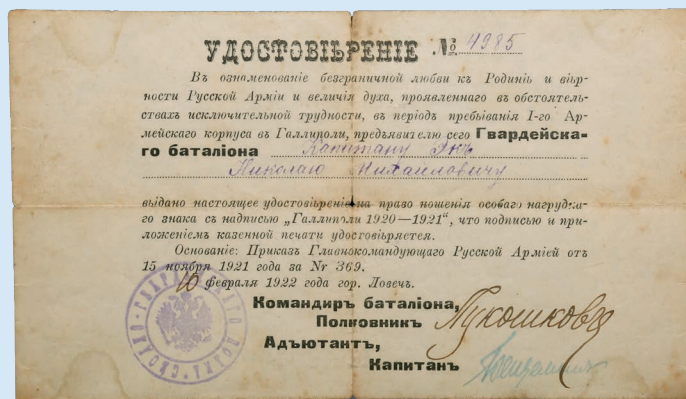 УДОСТОВІѢРЕНІЕ № 4985
Въ ознаменованіе безграничной любви къ Родиніь и віьр-
ности Русской Арміи и величія духа, проявленнаго въ обстоятель-
ствахъ исключительной трудности, въ періодъ пребыванія І-го Ар-
мейскаго корпуса въ Галлиполи, предъявителю сего Гвардейска-
го баталіона Капитану
Николаю Михайловичу
выдано настоящее удостовіьреніе на право ношенія особаго нагрудна-
го знака съ надписью „Галлиполи 1920—1921“, что подписью и при-
ложеніемъ казенной печати удостовіьряется.
Основаніе: Приказъ Главнокомандующаго Русской Арміей отъ
15 ноября 1921 года за Nr 369.
10 февраля 1922 года гор. Ловечъ.
Командиръ баталіона,
Полковникъ
Адъютантъ,
Капитанъ
СВОДНО-ГВАРДЕЙСКАГО ПОЛКА